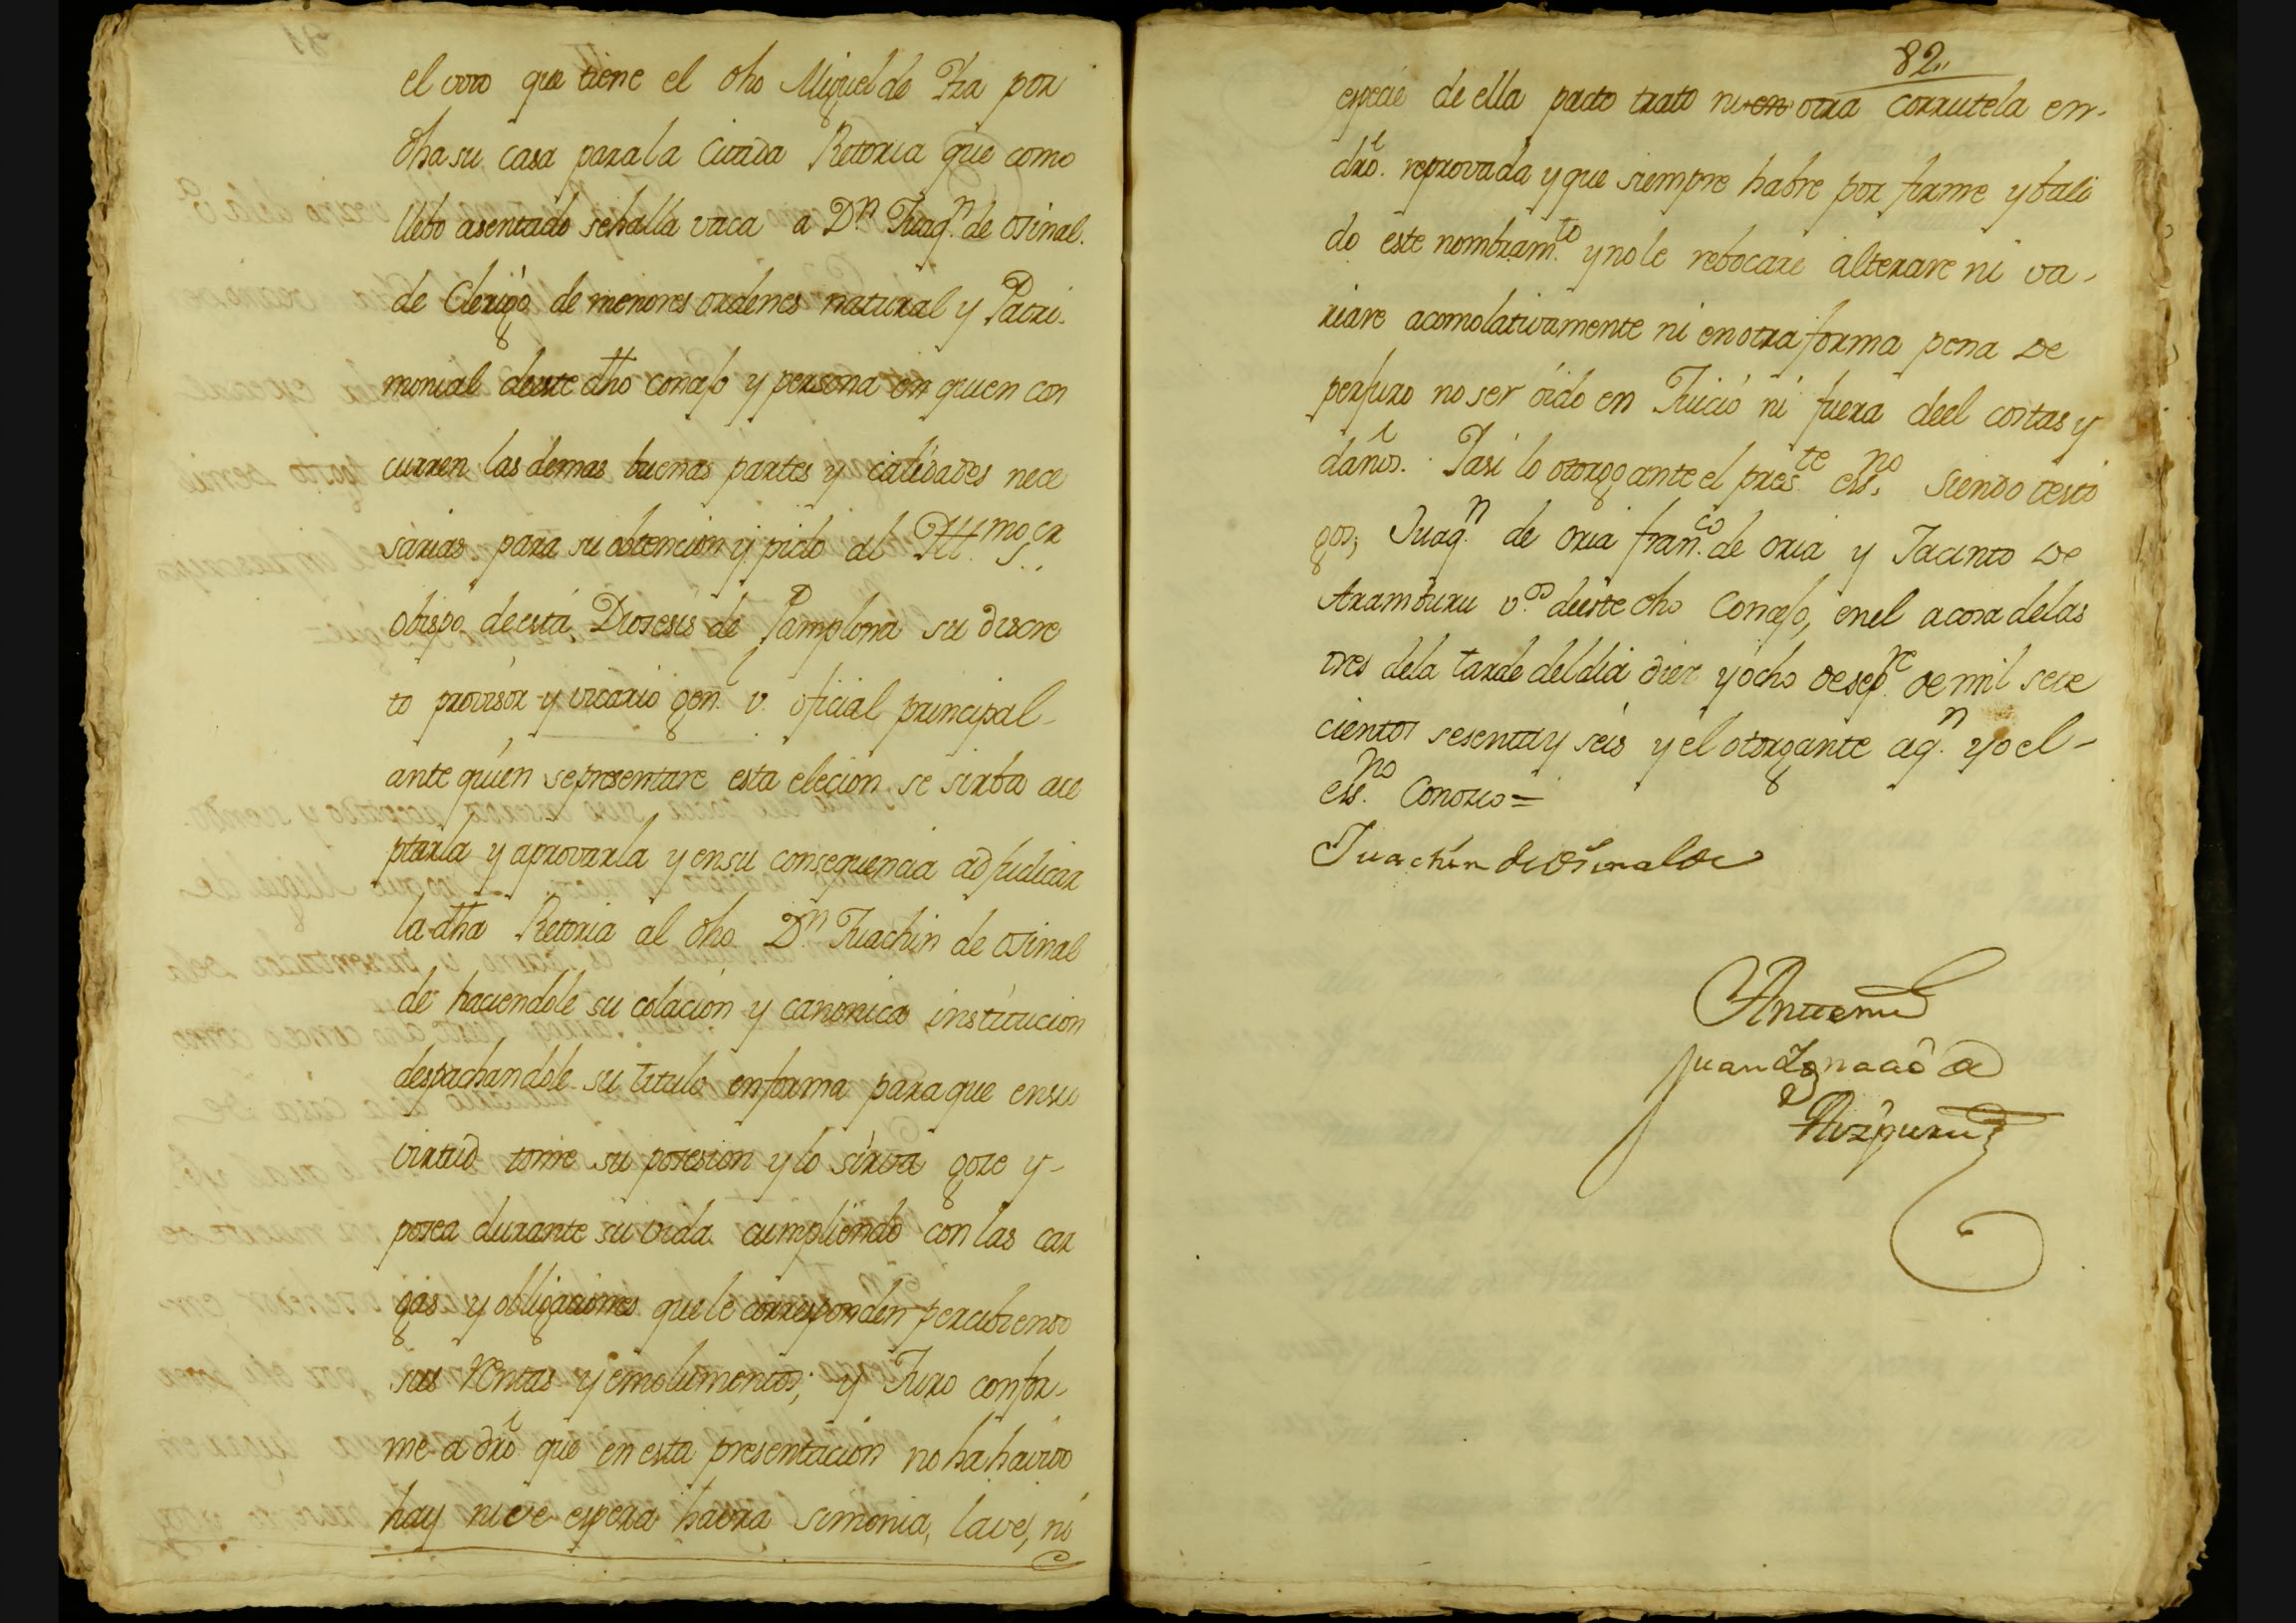 el voto que tiene el dho Miguel de Yza por
dha su casa para la Citada Retoria que como
llebo asentado se halla vaca a Dn. Juaqn. de Osinal.
de Clerigo de menores ordenes natural y Patri.
monial deeste dho concejo y persona en quien con
curren las demas buenas partes y calidades nece
sarias para su obtencion y pido al Yll.mo S.or
obispo de esta Diosesis de Pamplona su discre
to provisor y vicario gen.l v. oficial principal
ante quien se presentare esta elecion se sirba ace
ptarla y aprovarla y en su consequencia adjudicar
la dha Retoria al dho Dn. Juachin de Osinal
de haciendole su colacion y canonica institucion
despachandole su titulo en forma para que en su
virtud tome su posesion y lo sirva goze y
posea durante su vida cumpliendo con las car
gas y obligaciones que le corresponden percibiendo
sus Rentas y emolumentos; y Juro confor
me a dro. que en esta presentacion no ha havido
hay ni se espera havra simonia, lave, ni
82,,
especie de ella pacto trato ni en otra corrutela en
dro. reprovada y que siempre habre por firme y bali
do este nombram.to y no le rebocare alterare ni va-
riare acomolativamente ni en otra forma pena de
perjuro no ser oido en Juicio ni fuera deel costas y
daños. Yasi lo otorgo ante el pres.te ess.no siendo testi
gos, Juaqn. de Oria fran.co de Oria y Jacinto de
Aramburu v.os deeste dho Concejo, en el a cosa de las
tres de la tarde del dia diez y ocho de sep.re de mil sete
cientos sesenta y seis y el otorgante aqn. yo el-
ess.no Conozco=
Juachin de Osinalde
Ante mi
Juan Ignacio de
Aizpuru